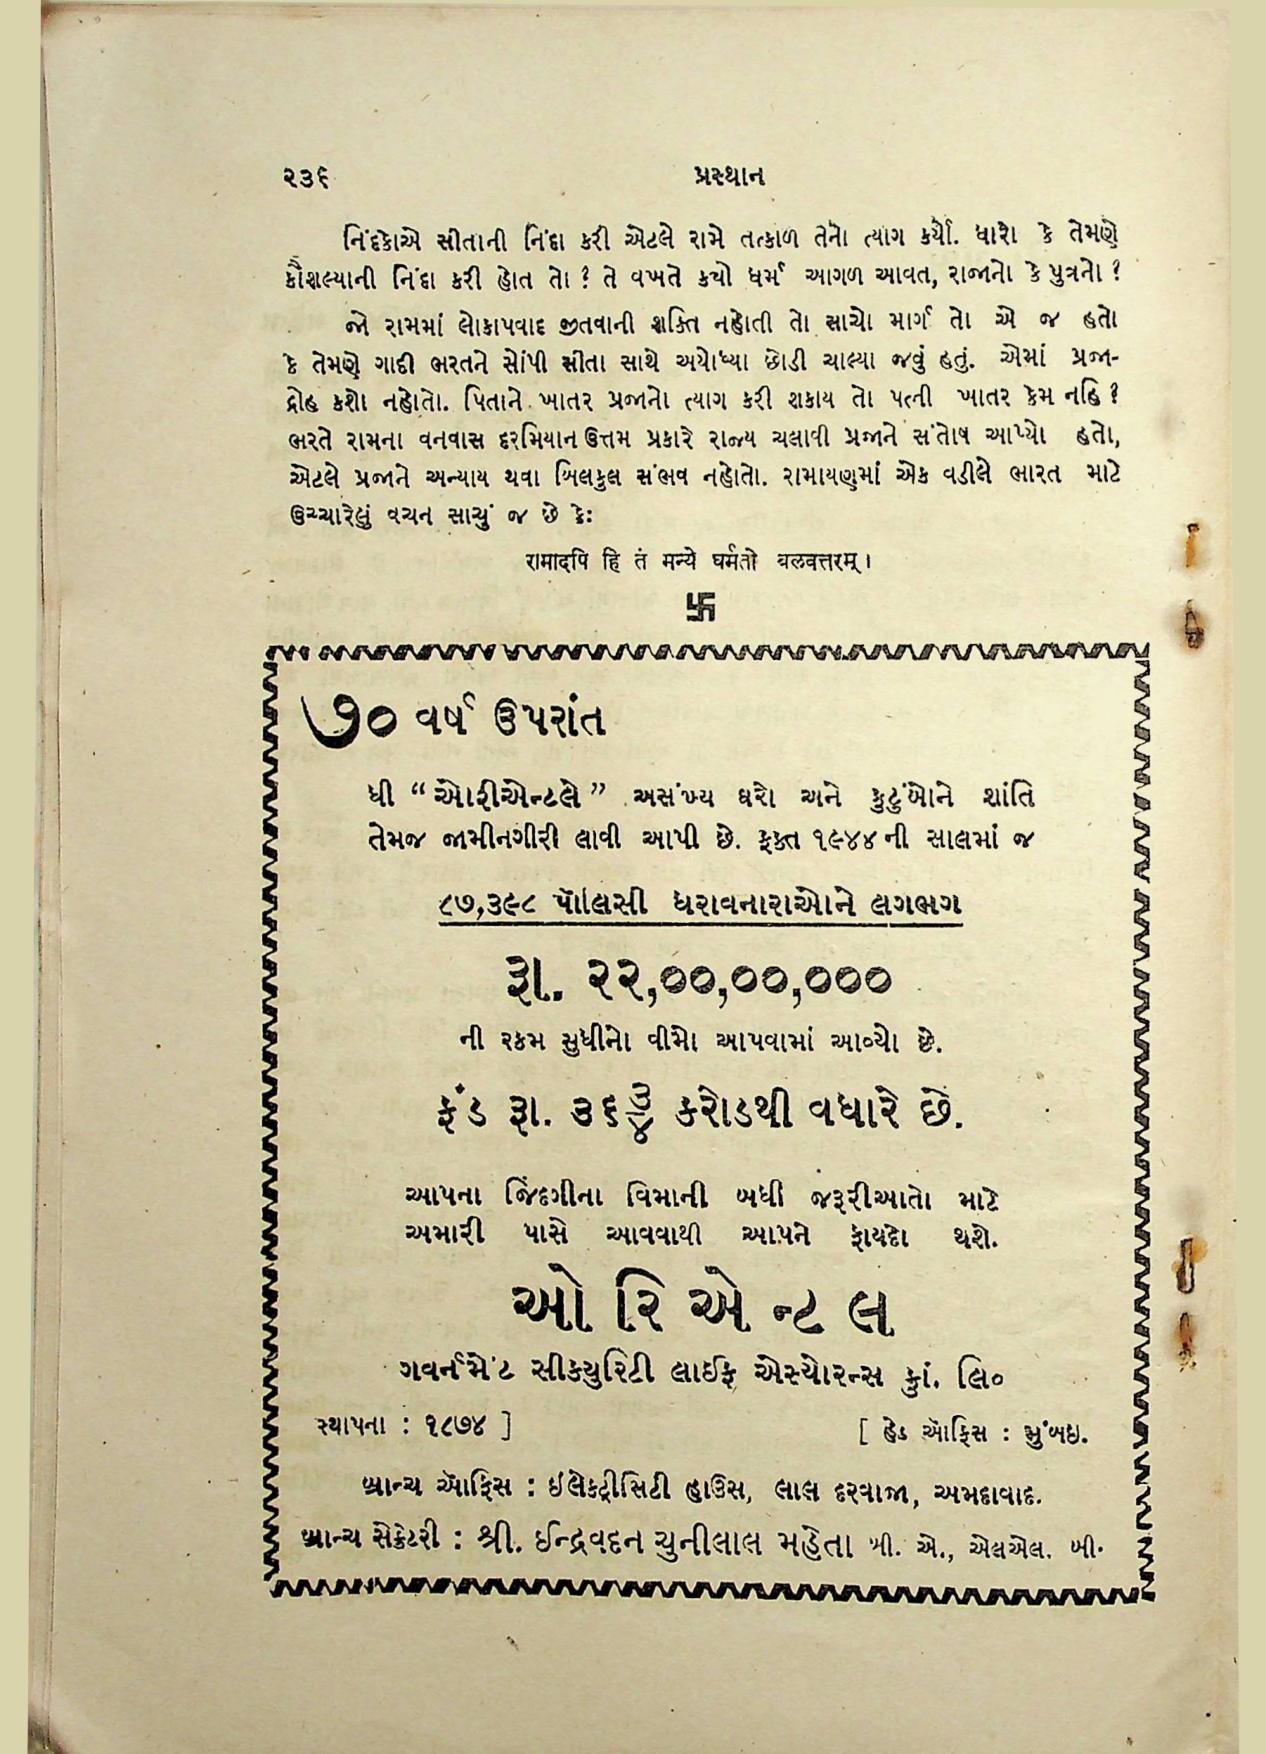 ૨૩૬ પ્રસ્થાન
નિંદકોએ સીતાની નિંદા કરી એટલે રામે તત્કાળ તેનો ત્યાગ કર્યો. ધારો કે તેમણે
કૌશલ્યાની નિંદા કરી હોત તો ? તે વખતે કયો ધર્મ આગળ આવત, રાજાનો કે પુત્રનો ?
જો રામમાં લોકાપવાદ જીતવાની શક્તિ નહોતી તો સાચો માર્ગ તો એ જ હતો
કે તેમણે ગાદી ભરતને સોંપી સીતા સાથે અયોધ્યા છોડી ચાલ્યા જવું હતું. એમાં પ્રજા-
દ્રોહ કશો નહોતો. પિતાને ખાતર પ્રજાનો ત્યાગ કરી શકાય તો પત્ની ખાતર કેમ નહિ ?
ભરતે રામના વનવાસ દરમિયાન ઉત્તમ પ્રકારે રાજ્ય ચલાવી પ્રજાને સંતોષ આપ્યો હતો,
એટલે પ્રજાને અન્યાય થવા બિલકુલ સંભવ નહોતો. રામાયણમાં એક વડીલે ભારત માટે
ઉચ્ચારેલું વચન સાચું જ છે કેઃ
रामादपि हि तं मन्ये घर्मतो वलवत्तरम् ।
卐
૭૦ વર્ષ ઉપરાંત
ધી “ ઓરીએન્ટલે ” અસંખ્ય ઘરો અને કુટુંબોને શાંતિ
તેમજ જામીનગીરી લાવી આપી છે. ફક્ત ૧૯૪૪ ની સાલમાં જ
૮૭,૩૯૮ પૉલિસી ધરાવનારાઓને લગભગ
રૂા. ૨૨,૦૦,૦૦,૦૦૦
ની રકમ સુધીનો વીમો આપવામાં આવ્યો છે.
ફંડ રૂા. ૩૬ ૩/૪ કરોડથી વધારે છે.
આપના જિંદગીના વિમાની બધી જરૂરીઆતો માટે
અમારી પાસે આવવાથી આપને ફાયદો થશે.
ઓ રિ એ ન્ટ લ
ગવર્નમેંટ સીક્યુરિટી લાઈફ એસ્યોરન્સ કુાં. લિ૦
સ્થાપના : ૧૮૭૪ ] [ હેડ ઑફિસ : મુંબઇ.
બ્રાન્ચ ઑફિસ : ઇલેક્ટ્રીસિટી હાઉસ, લાલ દરવાજા, અમદાવાદ.
બ્રાન્ચ સેક્રેટરી : શ્રી. ઈન્દ્રવદન ચુનીલાલ મહેતા બી. એ., એલએલ. બી.